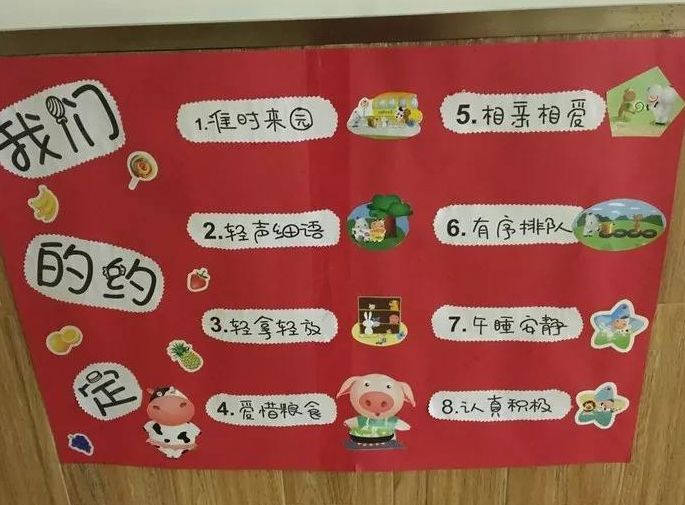 我们
的约
定
1.准时来园
2.轻声细语
3.轻拿轻放
4.爱惜粮食
5.相亲相爱
6.有序排队
7.午睡安静
8.认真积极